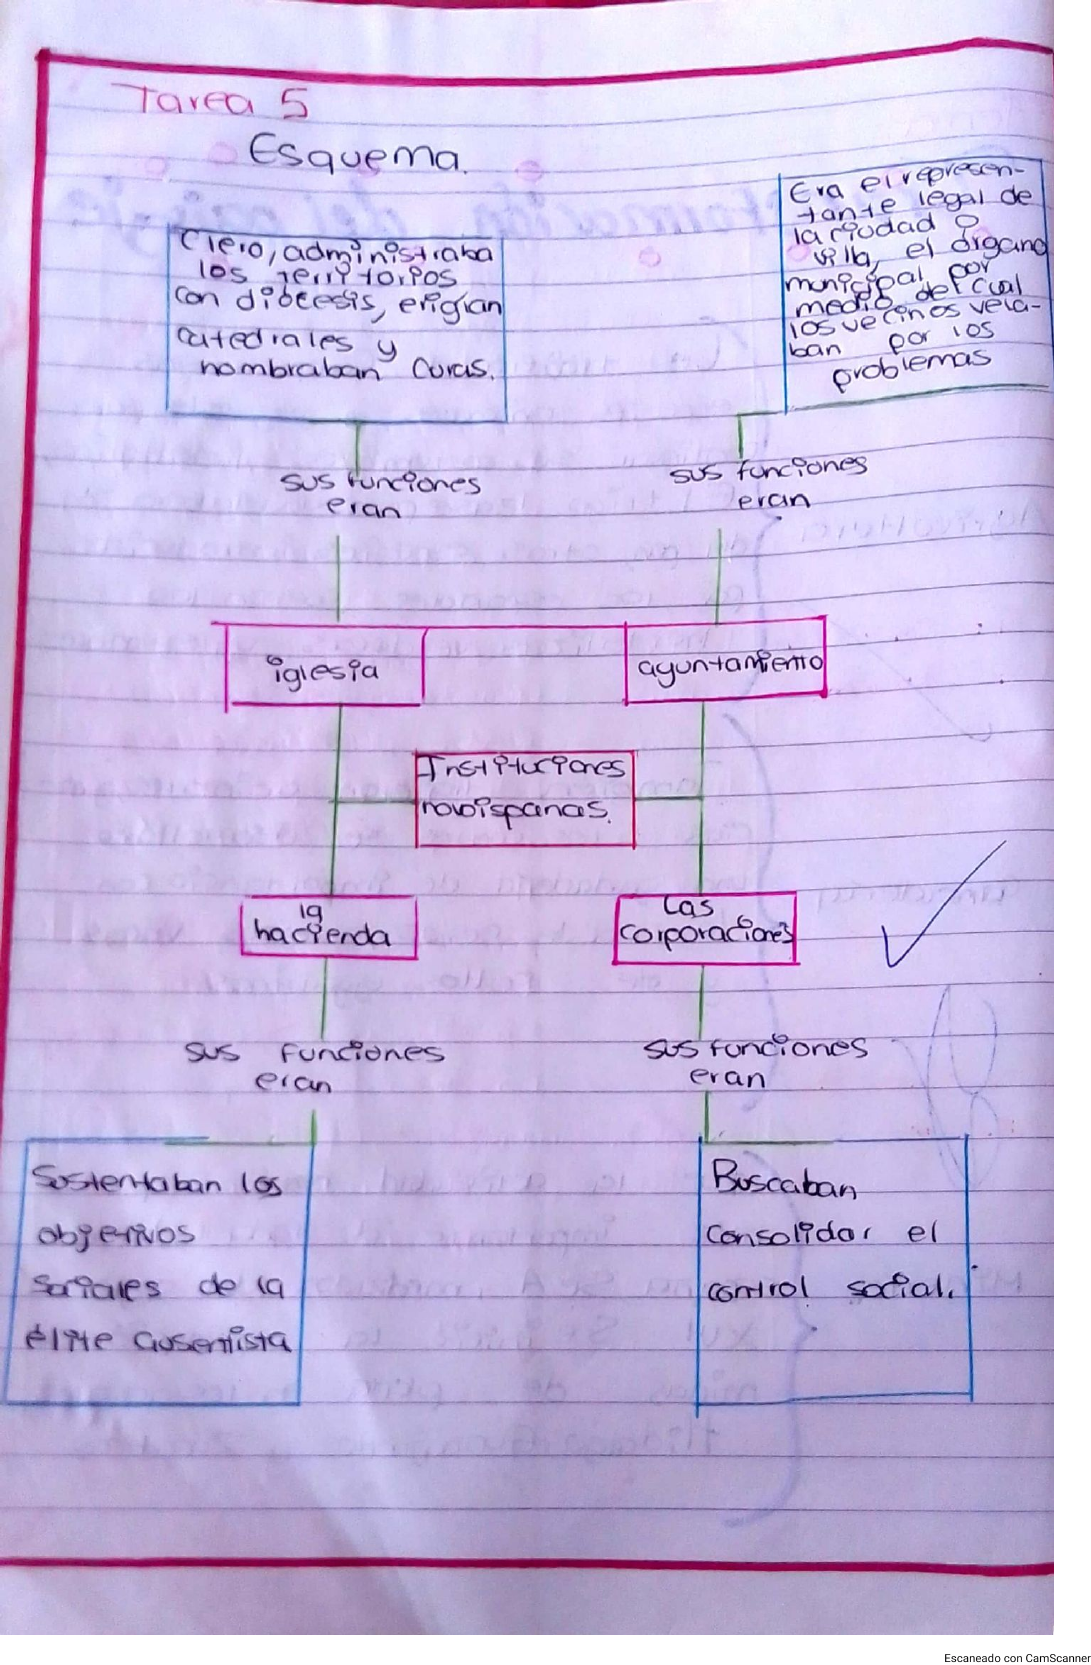 Tarea 5
Esquema.
Clero, administraba
los territorios
con diócesis, erigían
catedrales y
nombraban curas.
Era el represen-
tante legal de
la ciudad o
villa, el órgano
municipal por
medio del cual
los vecinos vela-
ban por los
problemas
sus funciones
eran
sus funciones
eran
iglesia
ayuntamiento
Instituciones
novoispanas.
la
hacienda
Las
corporaciones
sus funciones
eran
sus funciones
eran
Sustentaban los
objetivos
sociales de la
élite ausentista
Buscaban
consolidar el
control social.
Escaneado con CamScanner